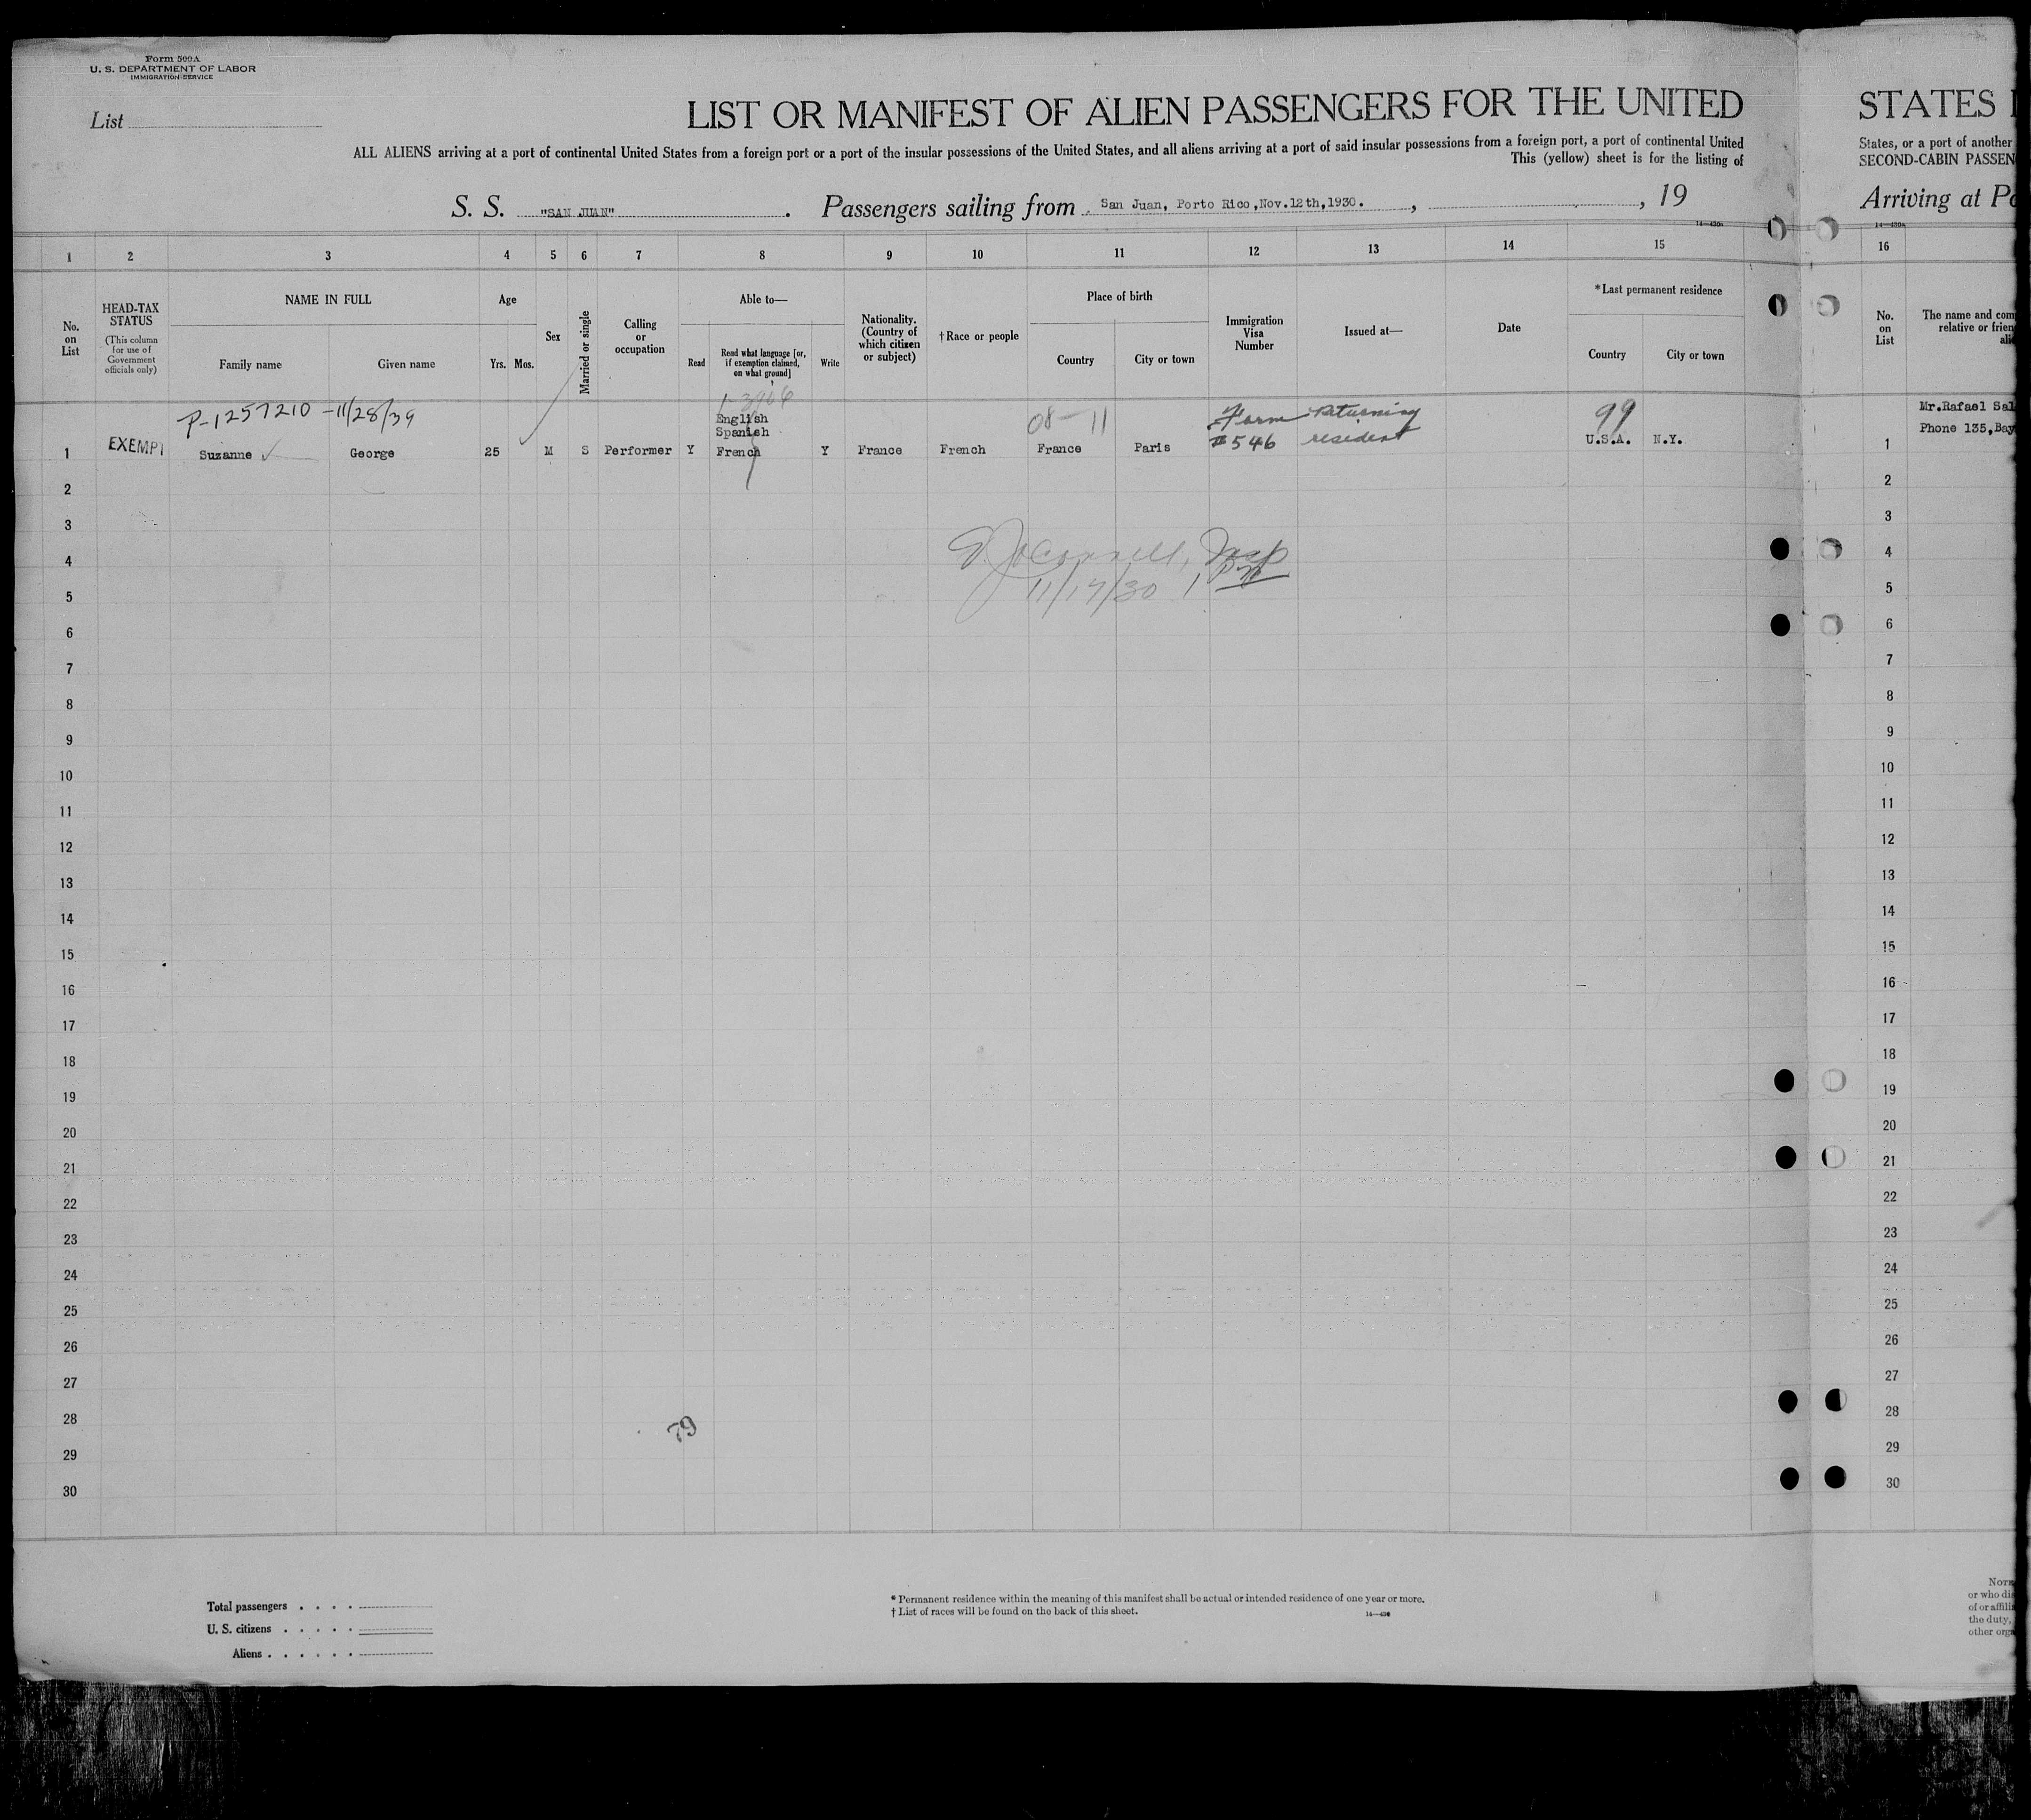 Form 500A
U. S. DEPARTMENT OF LABOR
IMMIGRATION SERVICE
List
LIST OR MANIFEST OF ALIEN PASSENGERS FOR THE UNITED
ALL ALIENS arriving at a port of continental United States from a foreign port or a port of the insular possessions of the United States, and all aliens arriving at a port of said insular possessions from a foreign port, a port of continental United
This (yellow) sheet is for the listing of
S. S. "SAN JUAN". Passengers sailing from San Juan, Porto Rico, Nov.12th,1930. , , 19
1 2 3 4 5 6 7 8 9 10 11 12 13 14 15
No. on List
HEAD-TAX STATUS
(This column for use of Government officials only)
NAME IN FULL
Family name Given name
Age
Yrs. Mos.
Sex
Married or single
Calling or occupation
Able to—
Read
Read what language [or, if exemption claimed, on what ground]
Write
Nationality. (Country of which citizen or subject)
†Race or people
Place of birth
Country City or town
Immigration Visa Number
Issued at—
Date
*Last permanent residence
Country City or town
P-1257210 -11/28/39
English
Spanish
08-11
Form returning
#546 resident
99
1 EXEMPT Suzanne George 25 M S Performer Y French Y France French France Paris U.S.A. N.Y.
2
3
4
5
6
7
8
9
10
11
12
13
14
15
16
17
18
19
20
21
22
23
24
25
26
27
28
29
30
11/17/30
79
Total passengers . . . .
U. S. citizens . . . . .
Aliens . . . . . .
* Permanent residence within the meaning of this manifest shall be actual or intended residence of one year or more.
† List of races will be found on the back of this sheet.
14—430
STATES
States, or a port of another
SECOND-CABIN
Arriving at
16
No. on List
The name and
relative or
Mr.Rafael
Phone 135,
1
2
3
4
5
6
7
8
9
10
11
12
13
14
15
16
17
18
19
20
21
22
23
24
25
26
27
28
29
30
or who
of or
the duty,
other